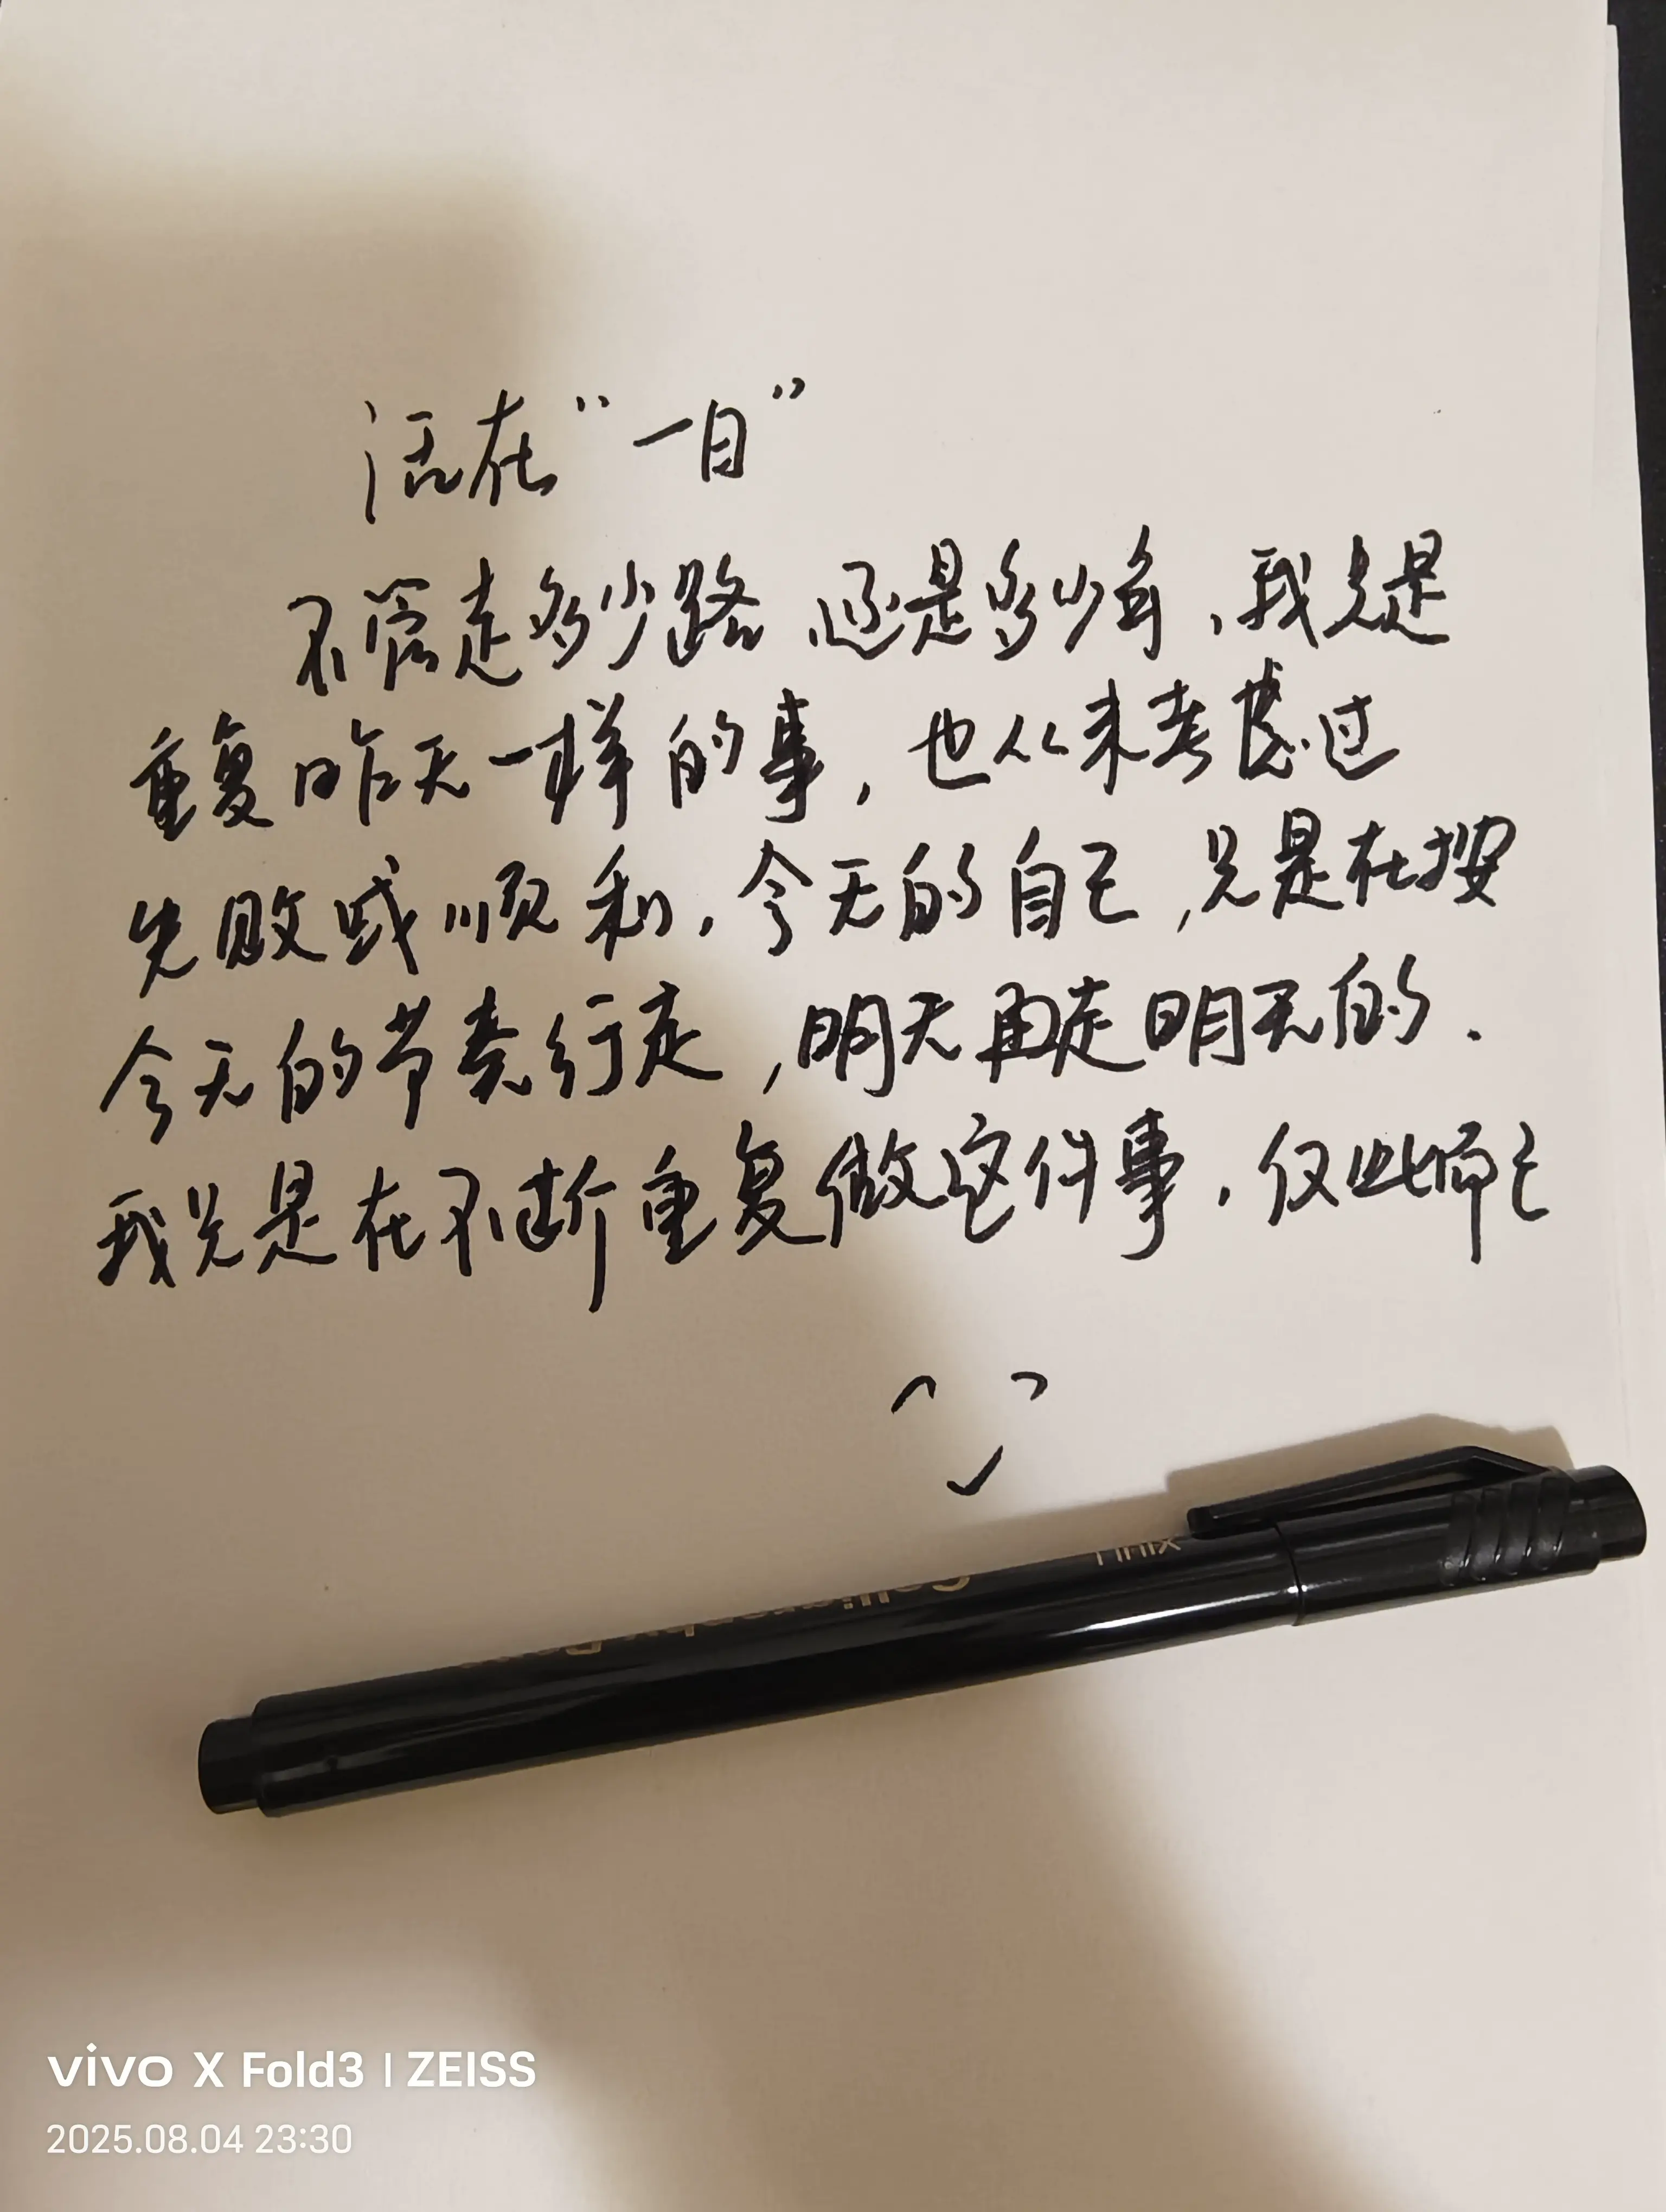 活在“一日”
不管走多少路 还是多少年，我只是
重复昨天一样的事，也从未考虑过
失败或顺利，今天的自己，只是在按
今天的节奏行走，明天再走明天的.
我只是在不断重复做这件事，仅此而已
vivo X Fold3 | ZEISS
2025.08.04 23:30